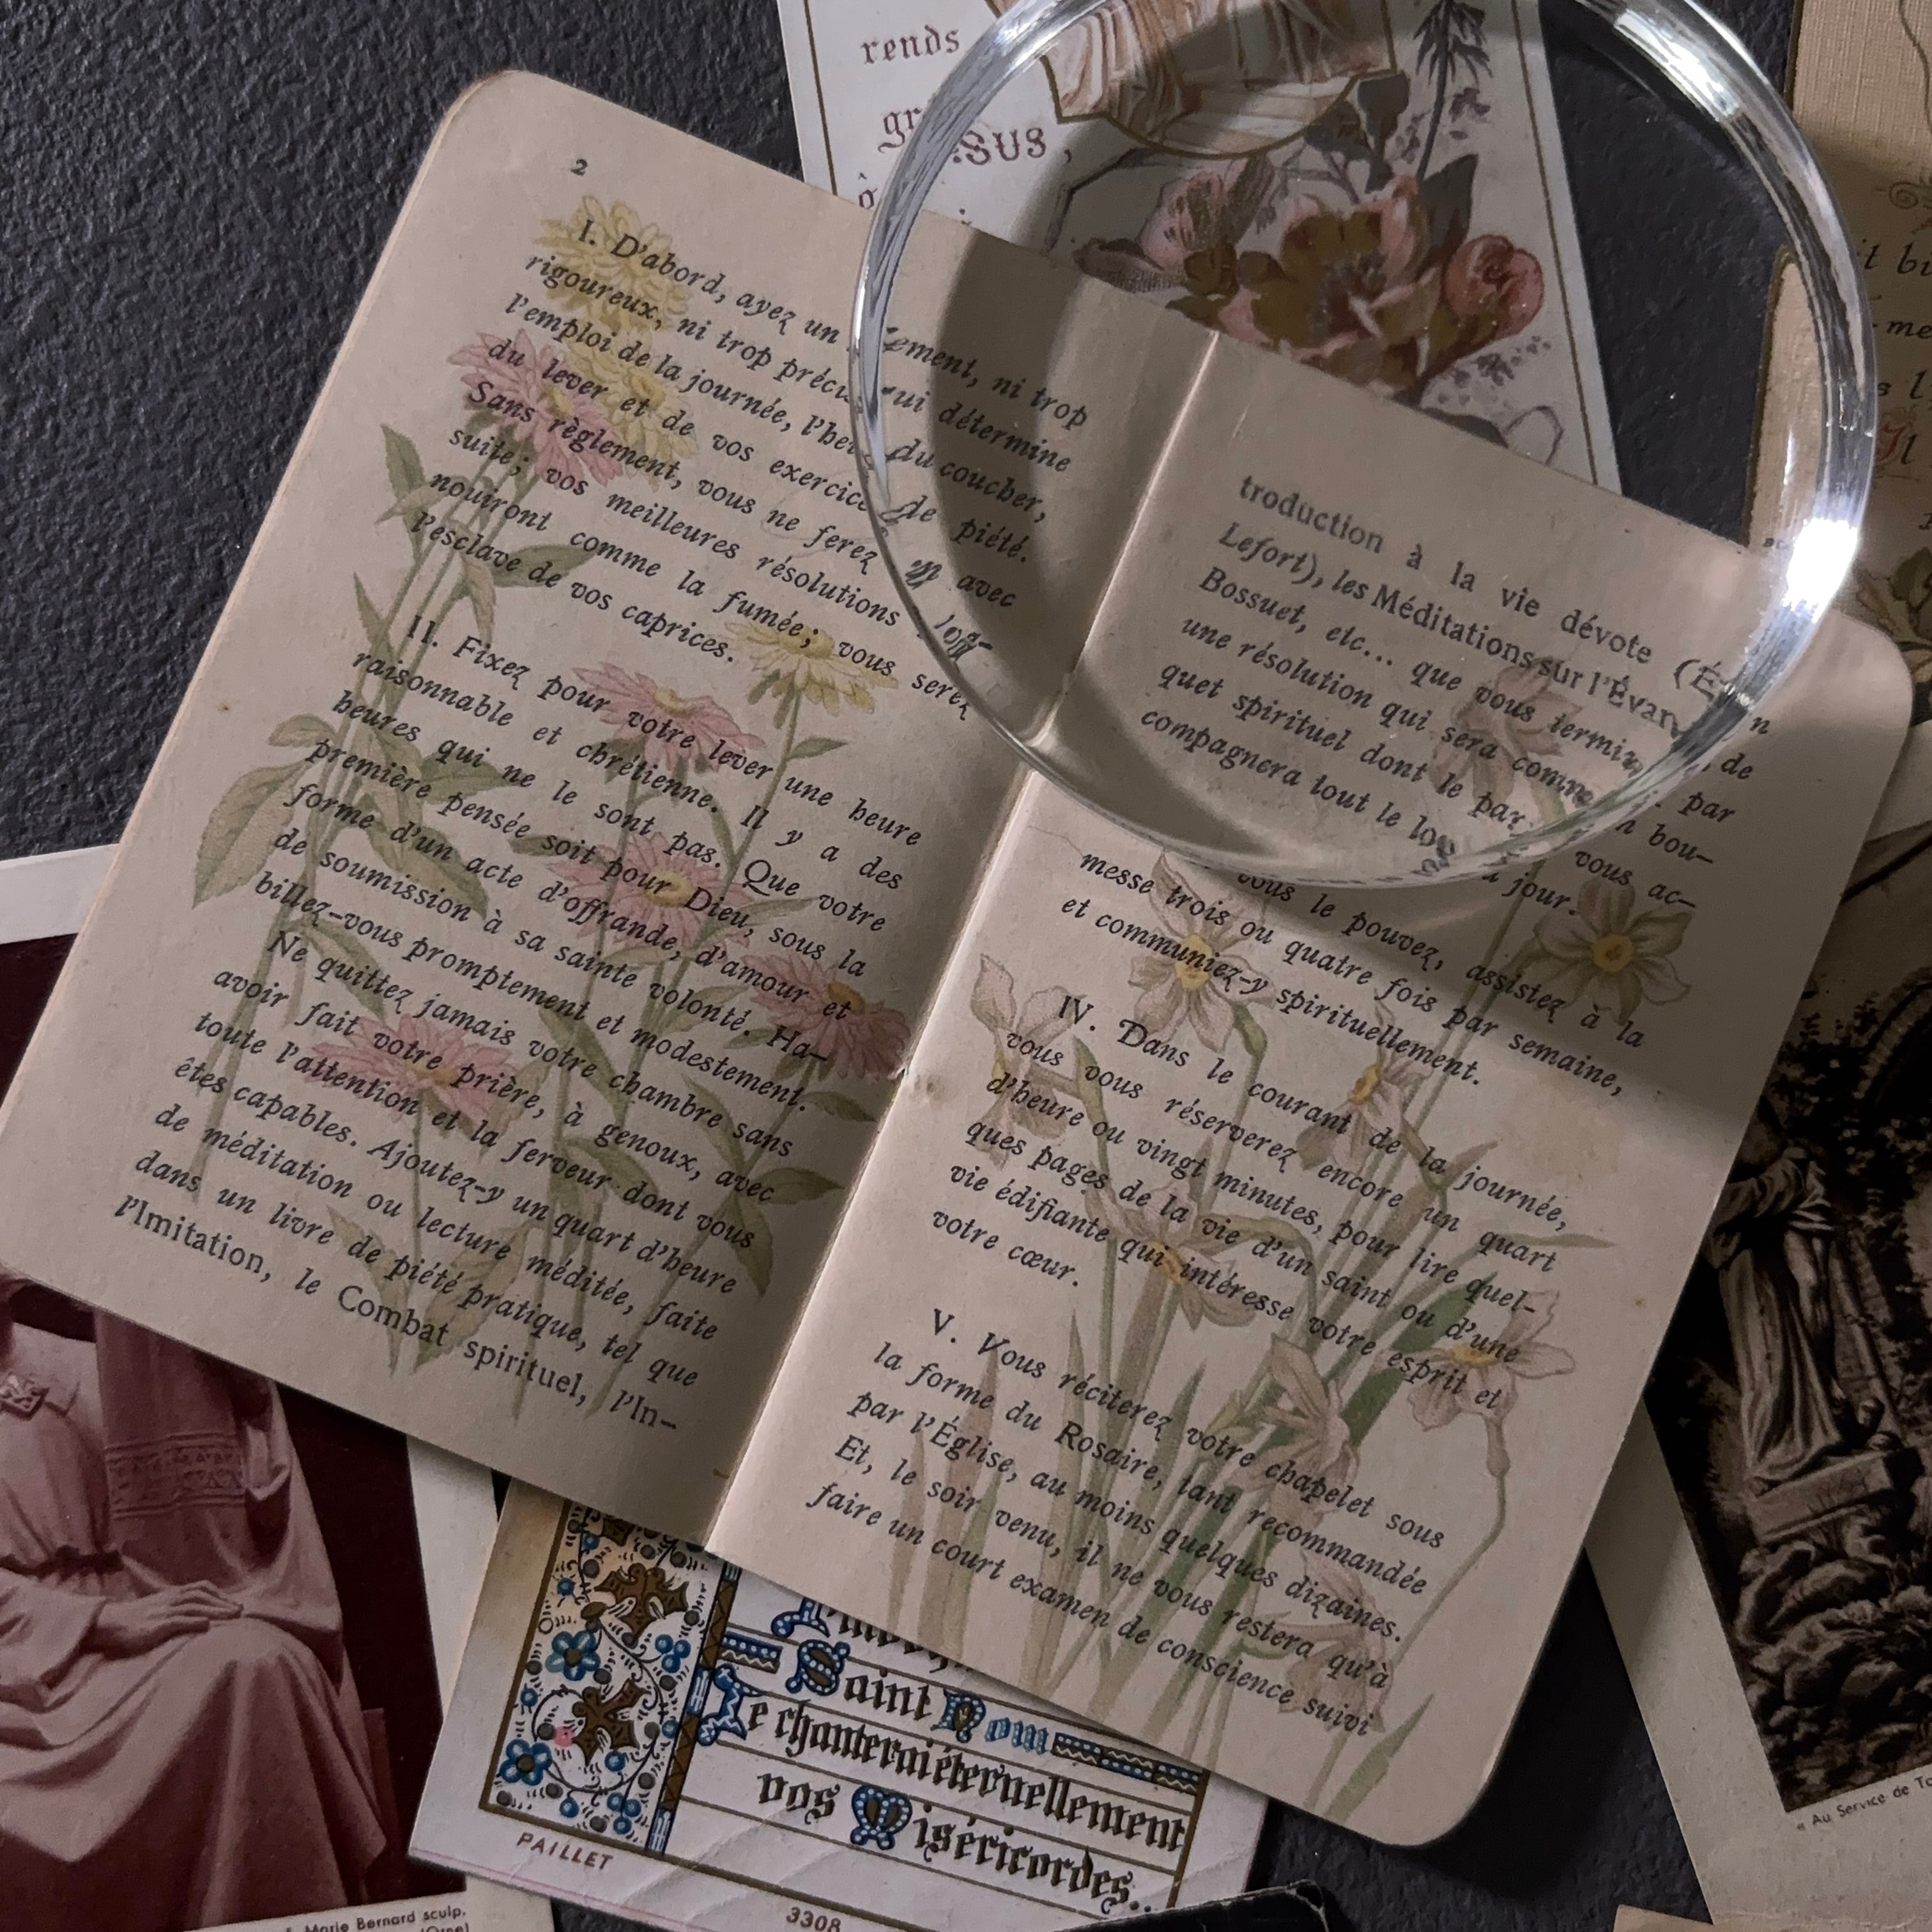 rends
ESUS,
ô
2
I. D'abord, ayez un ement, ni trop
rigoureux, ni trop précis qui détermine
l'emploi de la journée, l'heure du coucher,
du lever et de vos exercices de piété.
Sans règlement, vous ne ferez avec
suite; vos meilleures résolutions
nouiront comme la fumée; vous serez
l'esclave de vos caprices.
II. Fixez pour votre lever une heure
raisonnable et chrétienne. Il y a des
heures qui ne le sont pas. Que votre
première pensée soit pour Dieu, sous la
forme d'un acte d'offrande, d'amour et
de soumission à sa sainte volonté. Ha-
billez-vous promptement et modestement.
Ne quittez jamais votre chambre sans
avoir fait votre prière, à genoux, avec
toute l'attention et la ferveur dont vous
êtes capables. Ajoutez-y un quart d'heure
de méditation ou lecture méditée, faite
dans un livre de piété pratique, tel que
l'Imitation, le Combat spirituel, l'In-
troduction à la vie dévote
Lefort), les Méditations sur l'Évan de
Bossuet, etc... que vous par
une résolution qui sera comme bou-
quet spirituel dont le vous ac-
compagnera tout le jour.
vous le pouvez, assistez à la
messe trois ou quatre fois par semaine,
et communiez-y spirituellement.
IV. Dans le courant de la journée,
vous vous réserverez encore un quart
d'heure ou vingt minutes, pour lire quel-
ques pages de la vie d'un saint ou d'une
vie édifiante qui intéresse votre esprit et
votre cœur.
V. Vous réciterez votre chapelet sous
la forme du Rosaire, tant recommandée
par l'Église, au moins quelques dizaines.
Et, le soir venu, il ne vous restera qu'à
faire un court examen de conscience suivi
Saint Nom
Je chanterai éternellement
vos Miséricordes.
PAILLET
3308
Marie Bernard sculp.
(Orne)
« Au Service de